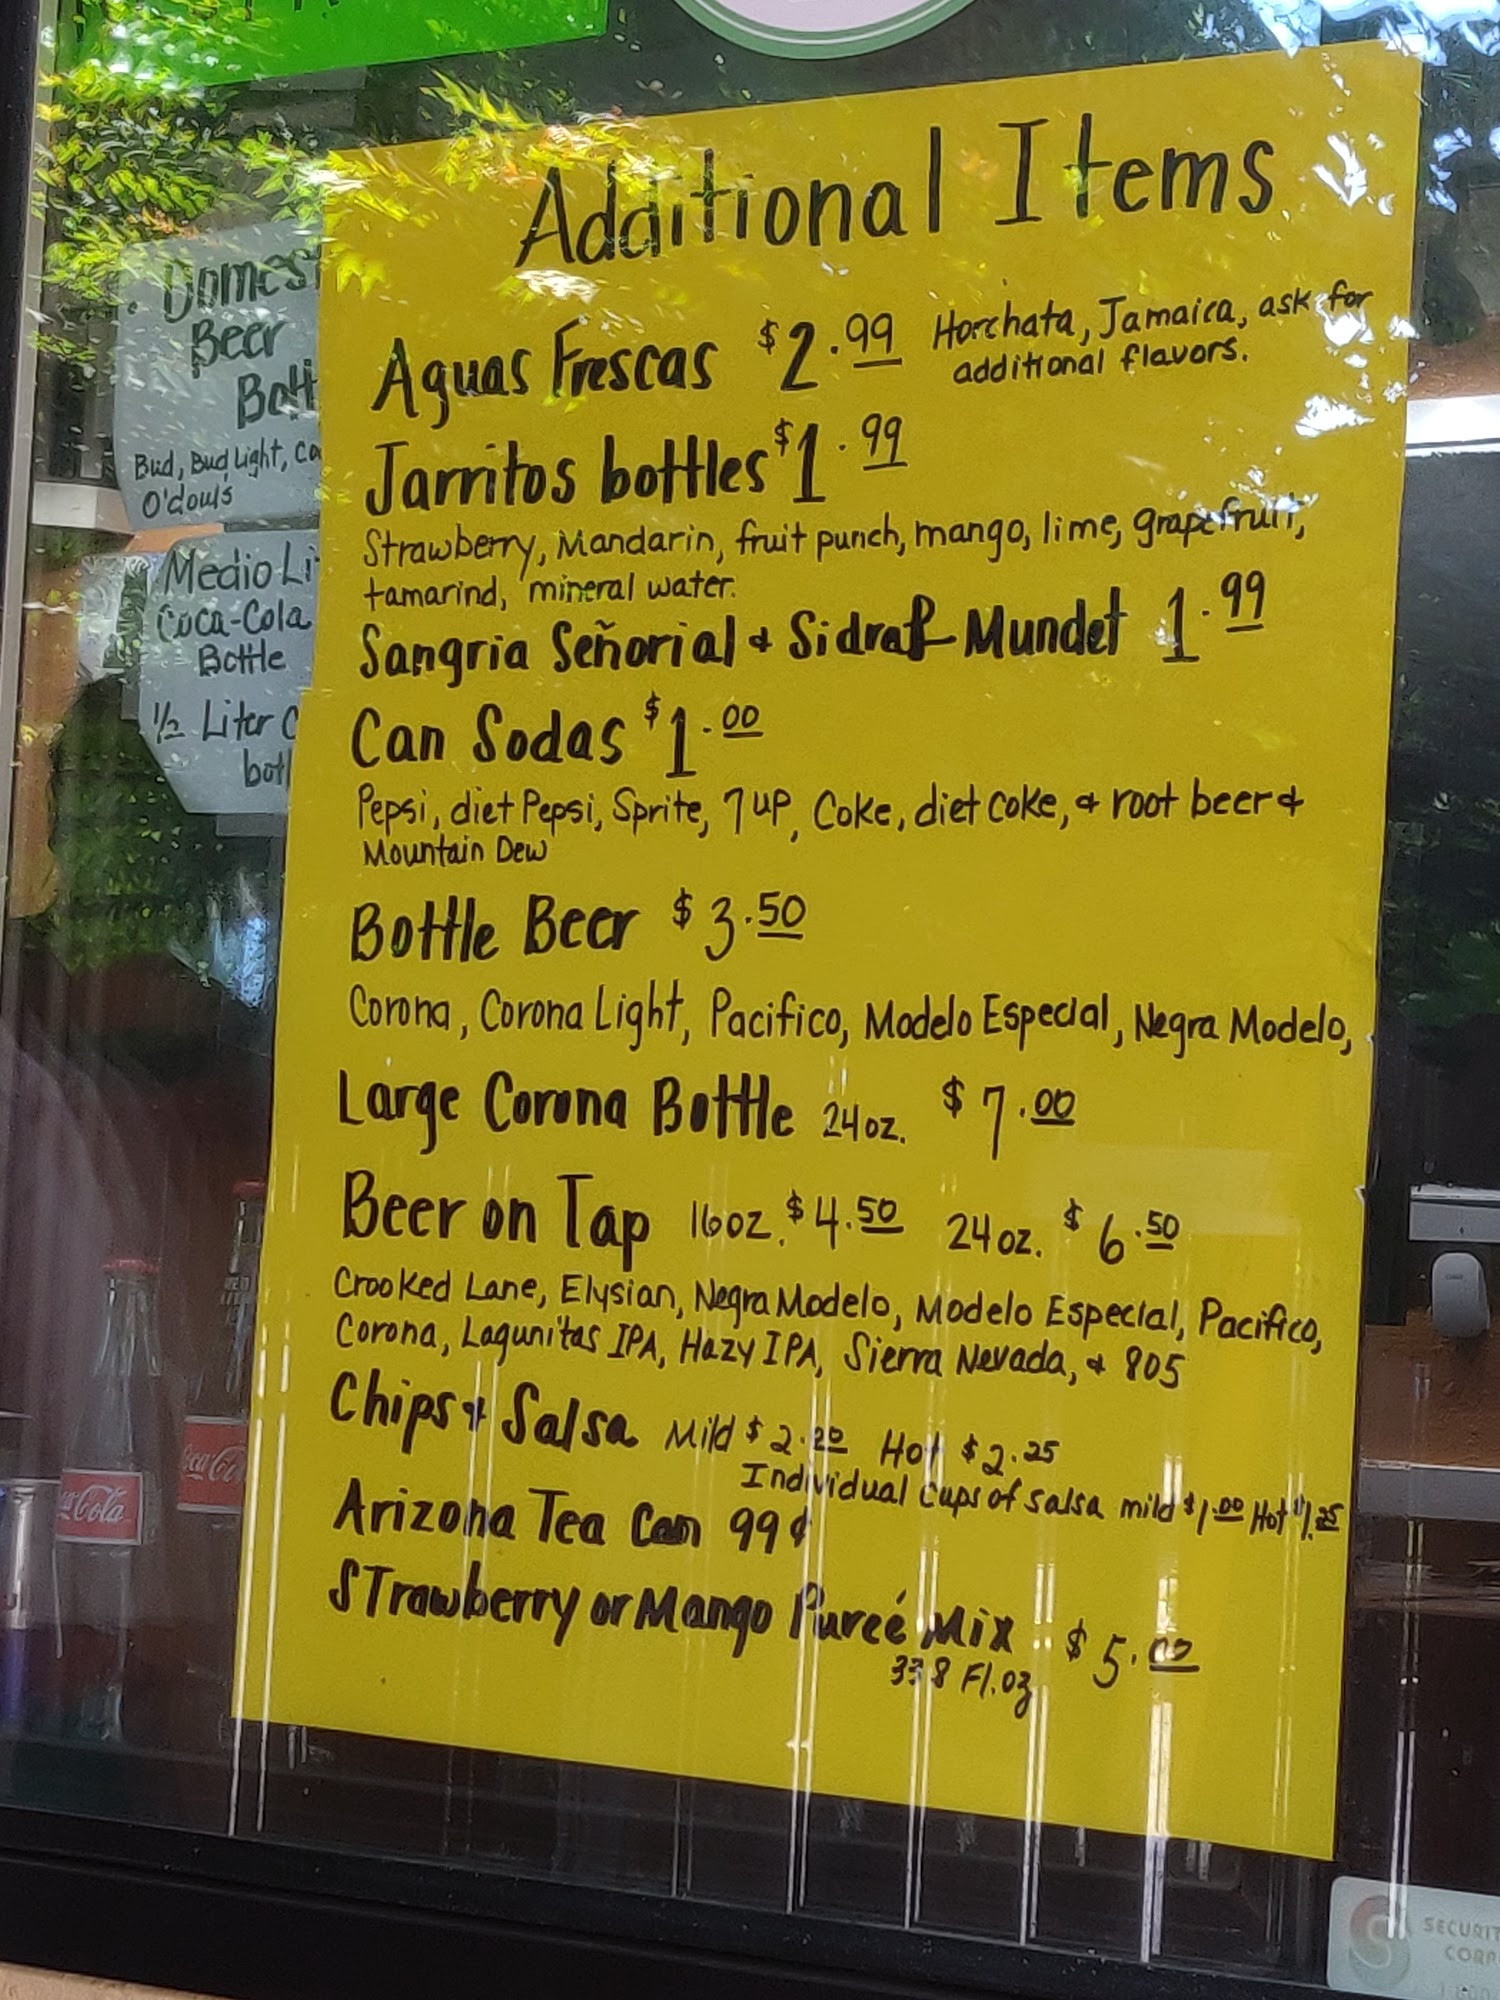 Additional Items
Aguas Frescas $2.99 Horchata, Jamaica, ask for
additional flavors.
Jarritos bottles $1.99
Strawberry, Mandarin, fruit punch, mango, lime, grapefruit,
tamarind, mineral water.
Sangria Señorial + Sidral Mundet 1.99
Can Sodas $1.00
Pepsi, diet Pepsi, Sprite, 7UP, Coke, diet coke, + root beer +
Mountain Dew
Bottle Beer $3.50
Corona, Corona Light, Pacifico, Modelo Especial, Negra Modelo,
Large Corona Bottle 24oz. $7.00
Beer on Tap 16oz. $4.50 24oz. $6.50
Crooked Lane, Elysian, Negra Modelo, Modelo Especial, Pacifico,
Corona, Lagunitas IPA, Hazy IPA, Sierra Nevada, + 805
Chips + Salsa Mild $2.00 Hot $2.25
Individual cups of salsa mild $1.00 Hot $1.25
Arizona Tea Can 99¢
Strawberry or Mango Pureé Mix $5.00
33.8 Fl.oz
Beer
Bud, Bud Light,
O'douls
Medio
Coca-Cola
Bottle
1/2 Liter
Coca-Cola